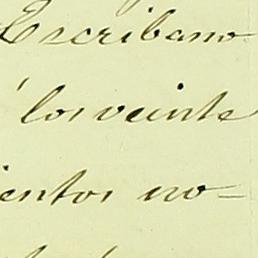 Escribano
los veinte
ientos no-